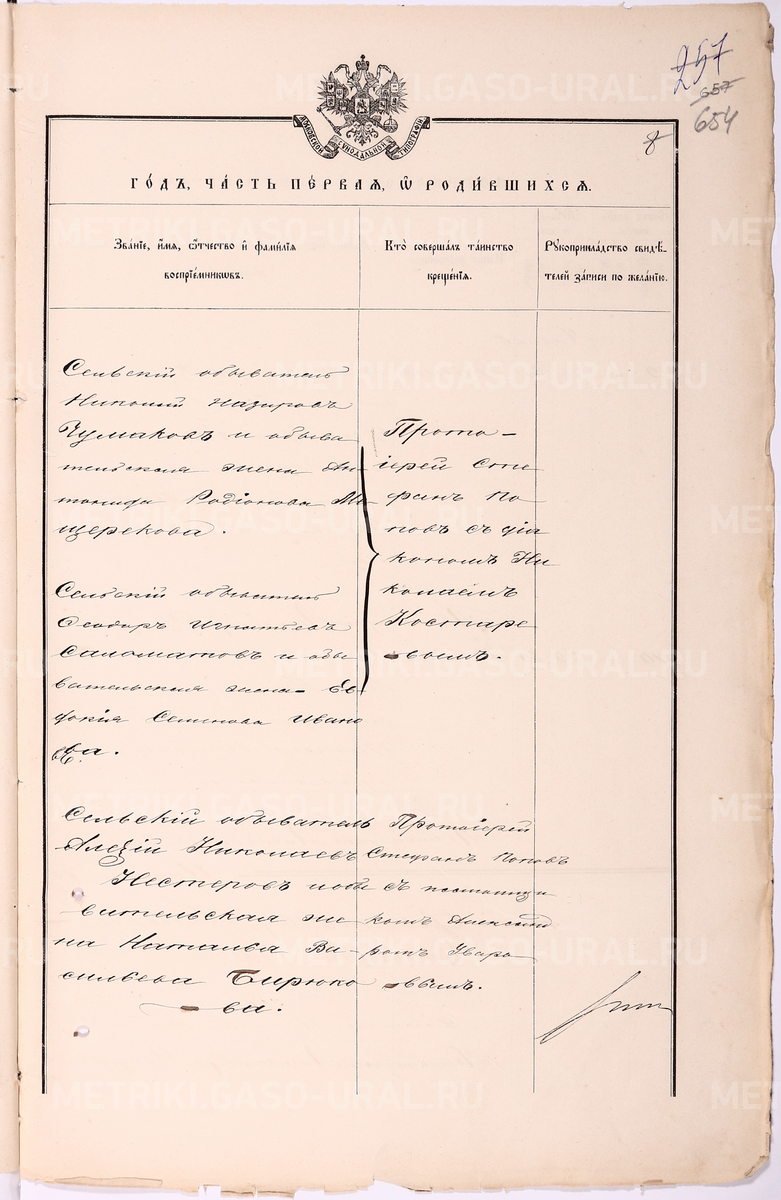 257
657
654
8
МОСКОВСКОЙ СѴНОДАЛЬНОЙ ТИПОГРАФІИ
ГО́ДЪ, ЧА́СТЬ ПЕ́РВАЯ, Ѿ РОДИ́ВШИХСѦ.
Зва́нїе, и҆́мѧ, ѻ҆́тчество и҆ фами́лїѧ
воспрїе́мникѡвъ.
Кто̀ соверша́лъ та́инство
креще́нїѧ.
Рꙋкоприкла́дство свидѣ́-
телей за́писи по жела́нїю.
Сельскій обыватель
Николай Назаровъ
Чумаковъ и обыва
тельская жена Ан
тонида Родіонова Ме
щерекова.
Сельскій обыватель
Феодоръ Игнатьевъ
Саломатовъ и обы
вательская жена Ев-
докія Семенова Ивано
ва.
Прото-
іерей Сте
фанъ По
повъ съ діа
кономъ Ни
колаемъ
Костаре
вымъ.
Сельскій обыватель
Алексій Николаевъ
Нестеровъ и обы
вательская же
на Наталья Ва-
сильева Бирюко
ва.
Протоіерей
Стефанъ Поповъ
съ псаломщи
комъ
Уваро
вымъ.
METRIKI.GASO-URAL.RU